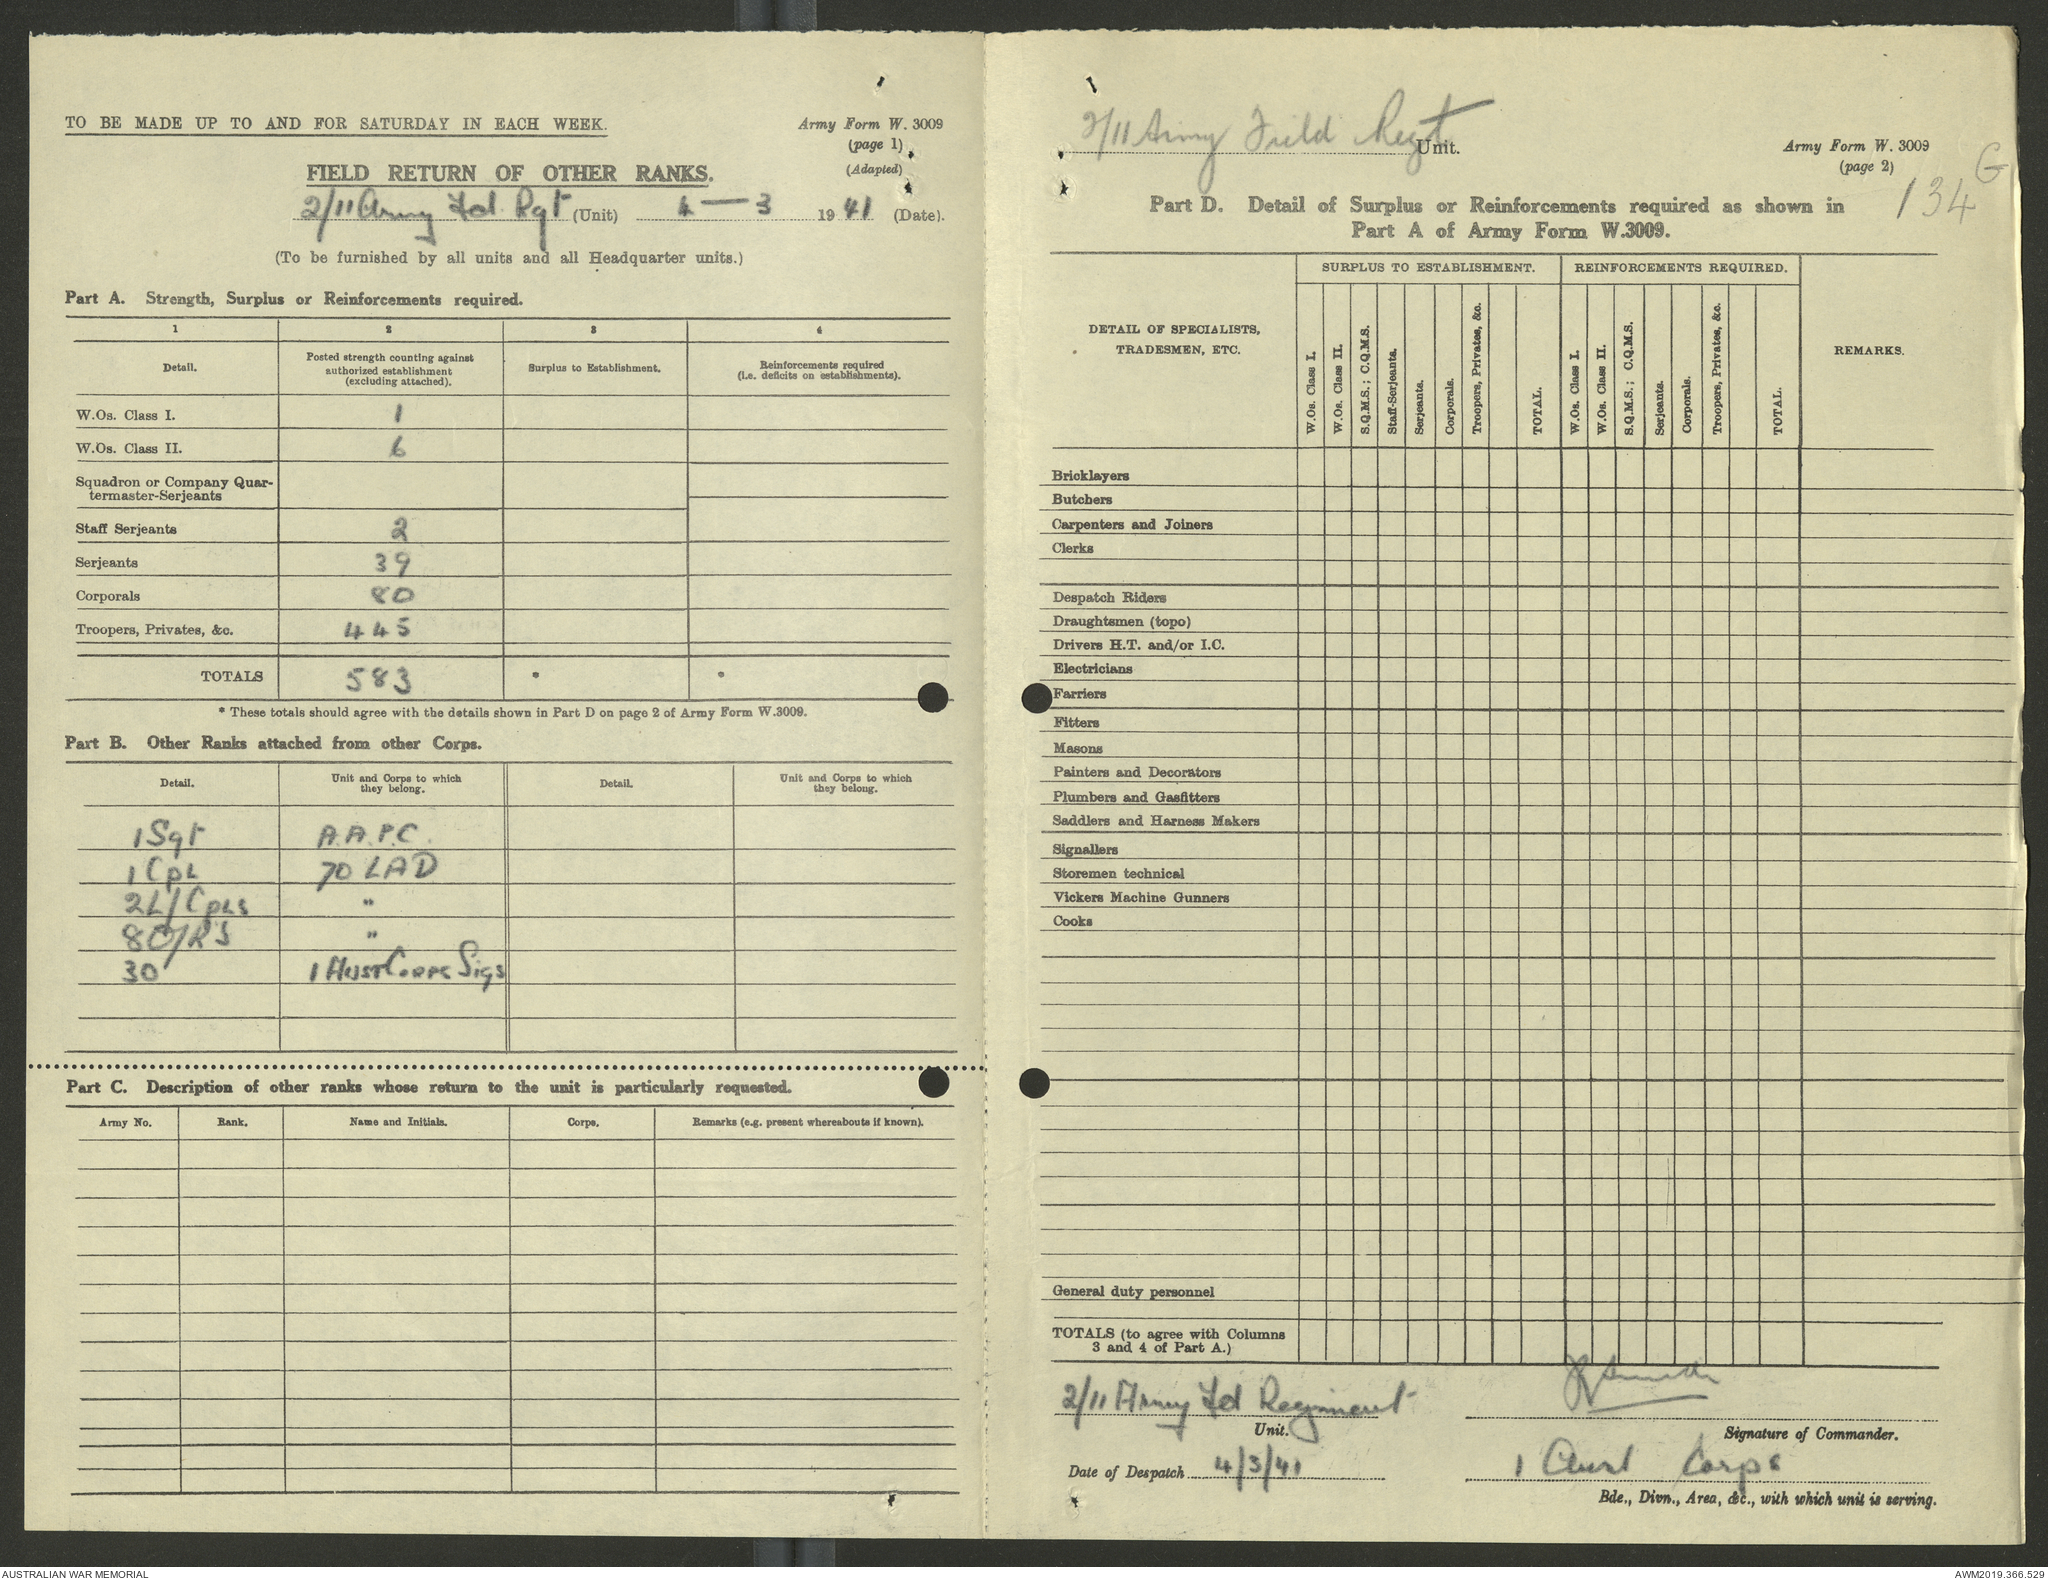 TO BE MADE UP TO AND FOR SATURDAY IN EACH WEEK.
Army Form W. 3009
(page 1)
(Adapted)
FIELD RETURN OF OTHER RANKS.
2/11 Army Fd. Rgt (Unit) 4 — 3 1941 (Date).
(To be furnished by all units and all Headquarter units.)
Part A. Strength, Surplus or Reinforcements required.
1 2 3 4
Detail. Posted strength counting against authorized establishment (excluding attached). Surplus to Establishment. Reinforcements required (i.e. deficits on establishments).
W.Os. Class I. 1
W.Os. Class II. 6
Squadron or Company Quar-
termaster-Serjeants
Staff Serjeants 2
Serjeants 39
Corporals 80
Troopers, Privates, &c. 445
TOTALS 583 * *
* These totals should agree with the details shown in Part D on page 2 of Army Form W.3009.
Part B. Other Ranks attached from other Corps.
Detail. Unit and Corps to which they belong. Detail. Unit and Corps to which they belong.
1 Sgt A.A.P.C.
1 Cpl 70 LAD
2 L/Cpls "
8 O/R's "
30 1 Aust Corps Sigs
Part C. Description of other ranks whose return to the unit is particularly requested.
Army No. Rank. Name and Initials. Corps. Remarks (e.g. present whereabouts if known).
2/11 Army Field Regt Unit.
Army Form W. 3009
(page 2)
134 G
Part D. Detail of Surplus or Reinforcements required as shown in
Part A of Army Form W.3009.
DETAIL OF SPECIALISTS, TRADESMEN, ETC.
SURPLUS TO ESTABLISHMENT.
W.Os. Class I.
W.Os. Class II.
S.Q.M.S.; C.Q.M.S.
Staff-Serjeants.
Serjeants.
Corporals.
Troopers, Privates, &c.
TOTAL.
REINFORCEMENTS REQUIRED.
W.Os. Class I.
W.Os. Class II.
S.Q.M.S.; C.Q.M.S.
Serjeants.
Corporals.
Troopers, Privates, &c.
TOTAL.
REMARKS.
Bricklayers
Butchers
Carpenters and Joiners
Clerks
Despatch Riders
Draughtsmen (topo)
Drivers H.T. and/or I.C.
Electricians
Farriers
Fitters
Masons
Painters and Decorators
Plumbers and Gasfitters
Saddlers and Harness Makers
Signallers
Storemen technical
Vickers Machine Gunners
Cooks
General duty personnel
TOTALS (to agree with Columns
3 and 4 of Part A.)
2/11 Army Fd Regiment
Unit.
Signature of Commander.
Date of Despatch 4/3/41
1 Aust Corps
Bde., Divn., Area, &c., with which unit is serving.
AUSTRALIAN WAR MEMORIAL
AWM2019.366.529